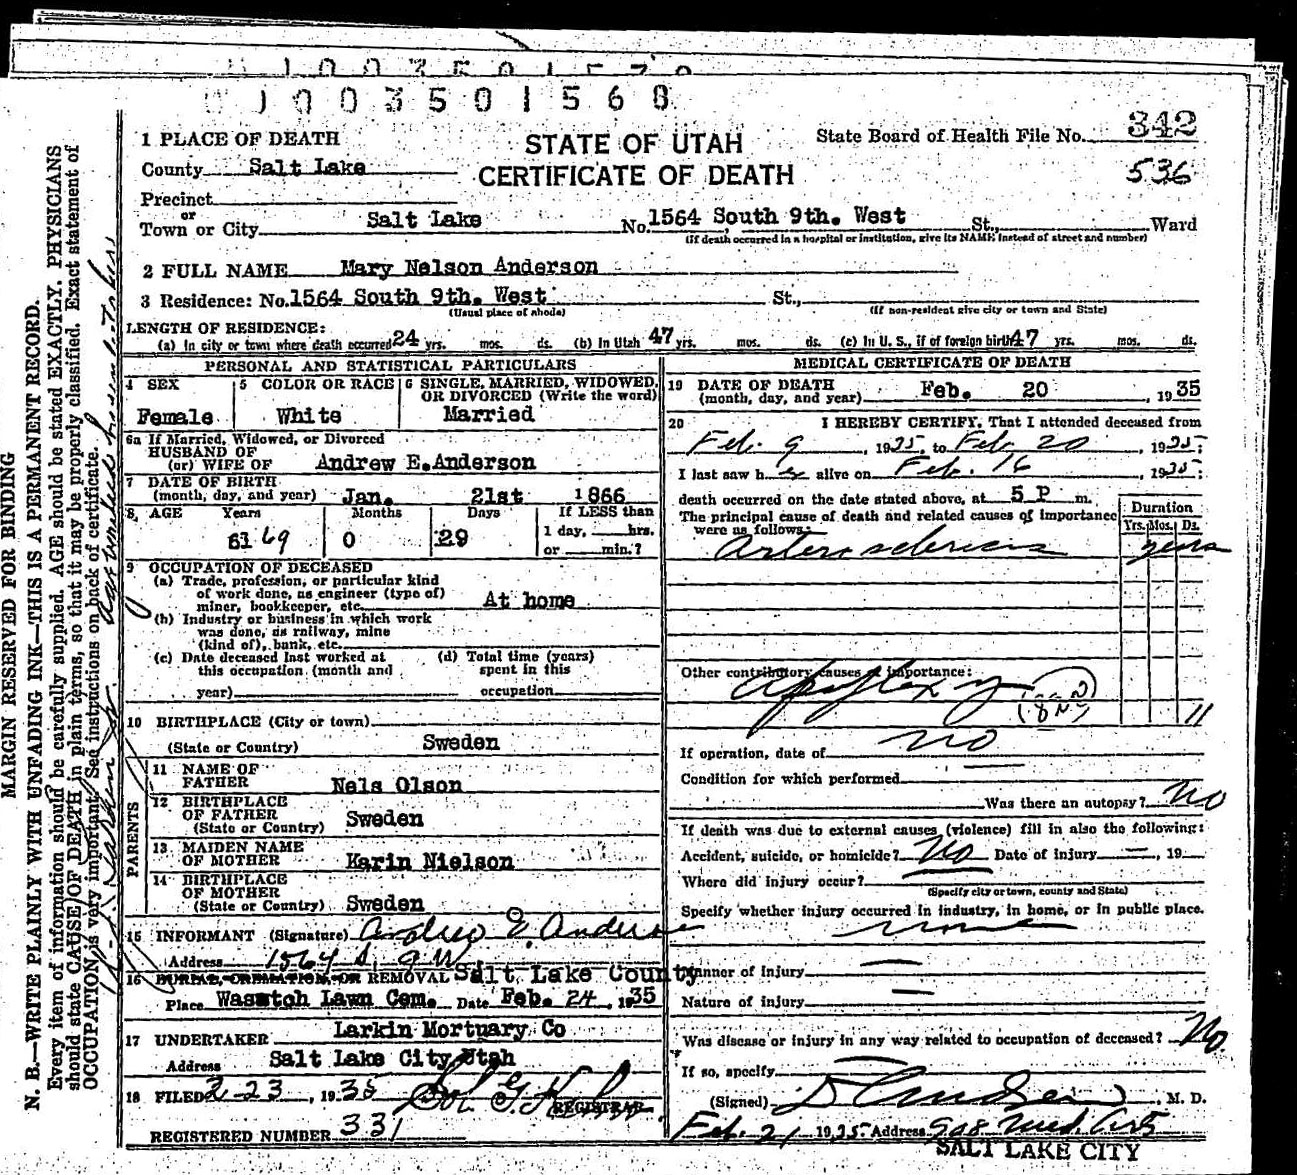 1003501568
1 PLACE OF DEATH
STATE OF UTAH
CERTIFICATE OF DEATH
State Board of Health File No. 342
536
County Salt Lake
Precinct
or
Town or City Salt Lake No. 1564 South 9th. West St., Ward
(If death occurred in a hospital or institution, give its NAME instead of street and number)
2 FULL NAME Mary Nelson Anderson
3 Residence: No. 1564 South 9th. West St.,
(Usual place of abode) (If non-resident give city or town and State)
LENGTH OF RESIDENCE:
(a) In city or town where death occurred 24 yrs. mos. ds. (b) In Utah 47 yrs. mos. ds. (c) In U. S., if of foreign birth 47 yrs. mos. ds.
PERSONAL AND STATISTICAL PARTICULARS
4 SEX
Female
5 COLOR OR RACE
White
6 SINGLE, MARRIED, WIDOWED,
OR DIVORCED (Write the word)
Married
6a If Married, Widowed, or Divorced
HUSBAND OF
(or) WIFE OF Andrew E. Anderson
7 DATE OF BIRTH
(month, day, and year) Jan. 21st 1866
8 AGE Years Months Days If LESS than
69 0 29 1 day, hrs.
or min.?
9 OCCUPATION OF DECEASED
(a) Trade, profession, or particular kind
of work done, as engineer (type of)
miner, bookkeeper, etc. At home
(b) Industry or business in which work
was done, as railway, mine
(kind of), bank, etc.
(c) Date deceased last worked at
this occupation (month and
year)
(d) Total time (years)
spent in this
occupation
10 BIRTHPLACE (City or town)
(State or Country) Sweden
PARENTS
11 NAME OF
FATHER Nels Olson
12 BIRTHPLACE
OF FATHER
(State or Country) Sweden
13 MAIDEN NAME
OF MOTHER Karin Nielson
14 BIRTHPLACE
OF MOTHER
(State or Country) Sweden
15 INFORMANT (Signature) Andrew E. Anderson
Address 1564 S. 9 W.
16 BURIAL, CREMATION, OR REMOVAL Salt Lake County
Place Wasatch Lawn Cem. Date Feb. 24, 1935
17 UNDERTAKER Larkin Mortuary Co
Address Salt Lake City Utah
18 FILED 2-23, 1935
REGISTRAR
REGISTERED NUMBER 331
MEDICAL CERTIFICATE OF DEATH
19 DATE OF DEATH
(month, day, and year) Feb. 20, 1935
20 I HEREBY CERTIFY, That I attended deceased from
Feb. 9, 1935 to Feb. 20, 1935;
I last saw her alive on Feb. 16 1935;
death occurred on the date stated above, at 5 P m.
The principal cause of death and related causes of importance
were as follows:
Duration
Yrs. Mos. Ds.
Arterio sclerosis years
Other contributory causes of importance:
Apoplexy
11
If operation, date of no
Condition for which performed
Was there an autopsy? No
If death was due to external causes (violence) fill in also the following:
Accident, suicide, or homicide? No Date of injury —, 19
Where did injury occur?
(Specify city or town, county and State)
Specify whether injury occurred in industry, in home, or in public place.
none
Manner of injury —
Nature of injury —
Was disease or injury in any way related to occupation of deceased? No.
If so, specify
(Signed) M. D.
Feb. 21 1935 Address 908 Med Arts
SALT LAKE CITY
MARGIN RESERVED FOR BINDING
N. B.—WRITE PLAINLY WITH UNFADING INK—THIS IS A PERMANENT RECORD.
Every item of information should be carefully supplied. AGE should be stated EXACTLY. PHYSICIANS
should state CAUSE OF DEATH in plain terms, so that it may be properly classified. Exact statement of
OCCUPATION is very important. See instructions on back of certificate.